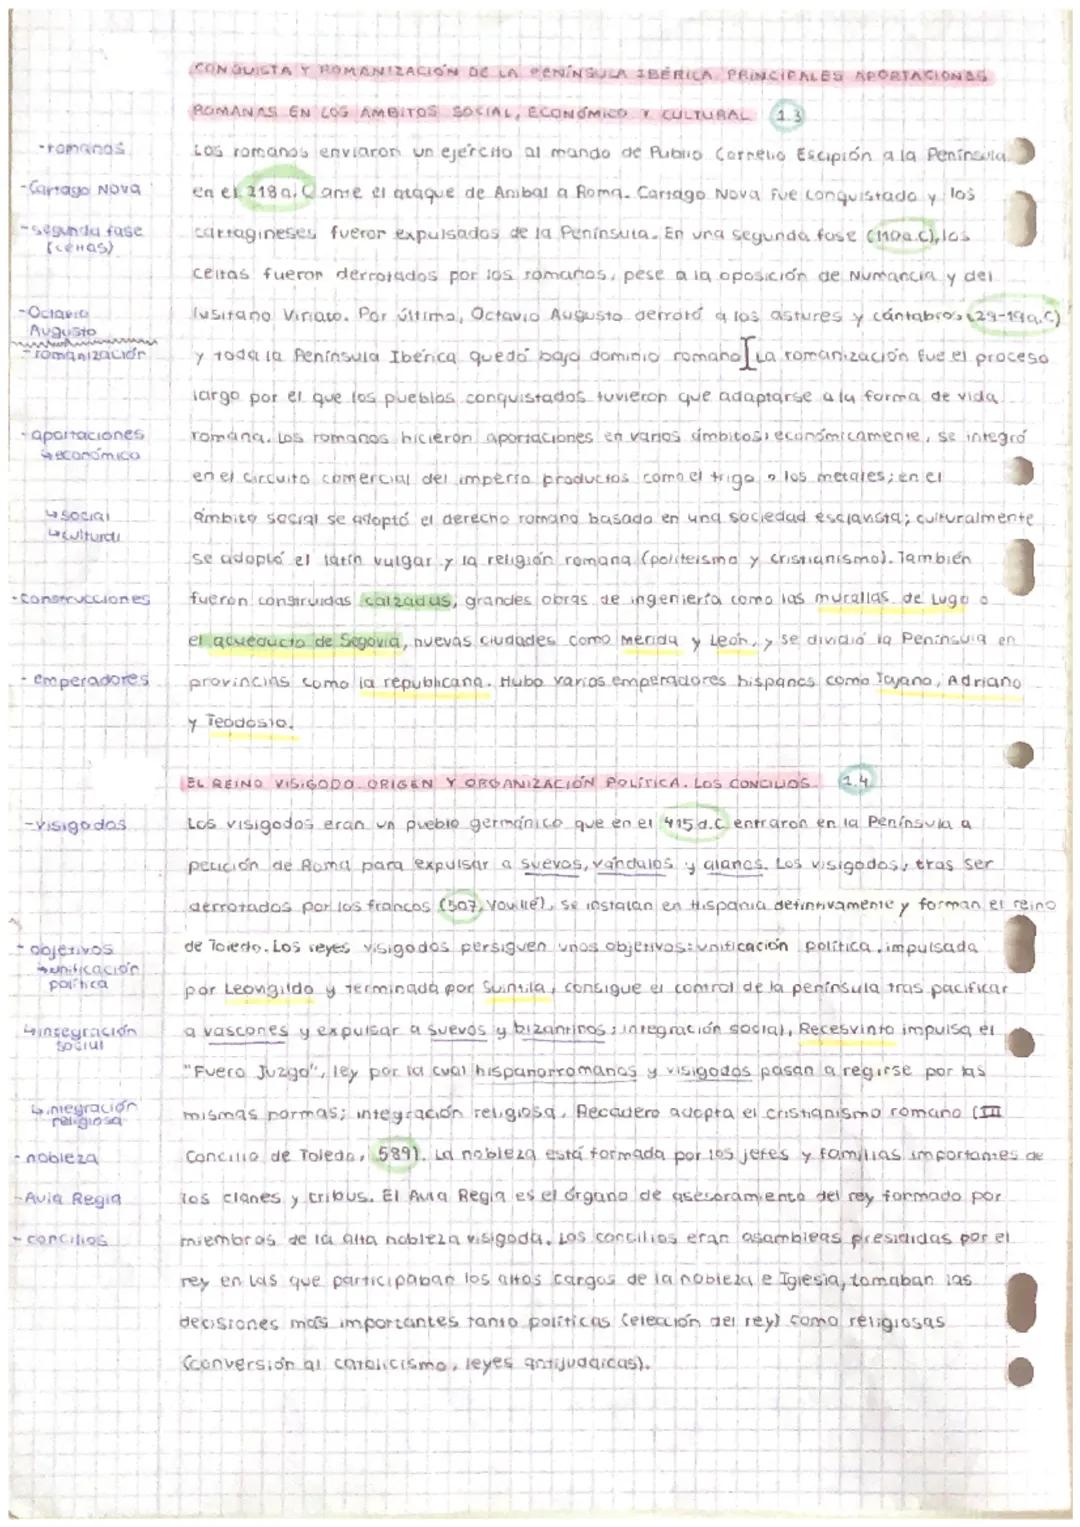 CONQUISTA Y ROMANIZACIÓN DE LA PENÍNSULA IBÉRICA. PRINCIPALES APORTACIONES
ROMANAS EN LOS ÁMBITOS SOCIAL, ECONÓMICO Y CULTURAL 1.3
-romanos
Los romanos enviaron un ejército al mando de Publio Cornelio Escipión a la Península
-Cartago Nova
en el 218 a.C ante el ataque de Aníbal a Roma. Cartago Nova fue conquistada y los
-segunda fase (celtas)
cartagineses fueron expulsados de la Península. En una segunda fase (110a.C), los
celtas fueron derrotados por los romanos, pese a la oposición de Numancia y del
-Octavio Augusto
lusitano Viriato. Por último, Octavio Augusto derrotó a los astures y cántabros (29-19a.C)
-romanización
y toda la Península Ibérica quedó bajo dominio romano. La romanización fue el proceso
largo por el que los pueblos conquistados tuvieron que adaptarse a la forma de vida
-aportaciones
romana. Los romanos hicieron aportaciones en varios ámbitos: económicamente, se integró
↳económico
en el circuito comercial del imperio productos como el trigo o los metales; en el
↳social
ámbito social se adoptó el derecho romano basado en una sociedad esclavista; culturalmente
↳cultural
se adoptó el latín vulgar y la religión romana (politeísmo y cristianismo). También
-construcciones
fueron construidas calzadas, grandes obras de ingeniería como las murallas de Lugo o
el acueducto de Segovia, nuevas ciudades como Mérida y León, y se dividió la Península en
-emperadores
provincias como la republicana. Hubo varios emperadores hispanos como Tajano, Adriano
y Teodosio.
EL REINO VISIGODO. ORIGEN Y ORGANIZACIÓN POLÍTICA. LOS CONCILIOS. 1.4
-visigodos
Los visigodos eran un pueblo germánico que en el 415 d.C entraron en la Península a
petición de Roma para expulsar a suevos, vándalos y alanos. Los visigodos, tras ser
derrotados por los francos (507, Vouillé), se instalan en Hispania definitivamente y forman el reino
-objetivos
de Toledo. Los reyes visigodos persiguen unos objetivos: unificación política, impulsada
↳unificación política
por Leovigildo y terminada por Suintila, consigue el control de la península tras pacificar
↳integración social
a vascones y expulsar a suevos y bizantinos; integración social, Recesvinto impulsa el
"Fuero Juzgo", ley por la cual hispanorromanos y visigodos pasan a regirse por las
↳integración religiosa
mismas normas; integración religiosa, Recadero adopta el cristianismo romano (III
-nobleza
Concilio de Toledo, 589). La nobleza está formada por los jefes y familias importantes de
-Aula Regia
los clanes y tribus. El Aula Regia es el órgano de asesoramiento del rey formado por
-concilios
miembros de la alta nobleza visigoda. Los concilios eran asambleas presididas por el
rey en las que participaban los altos cargos de la nobleza e Iglesia, tomaban las
decisiones más importantes tanto políticas (elección del rey) como religiosas
(conversión al catolicismo, leyes antijudaicas).